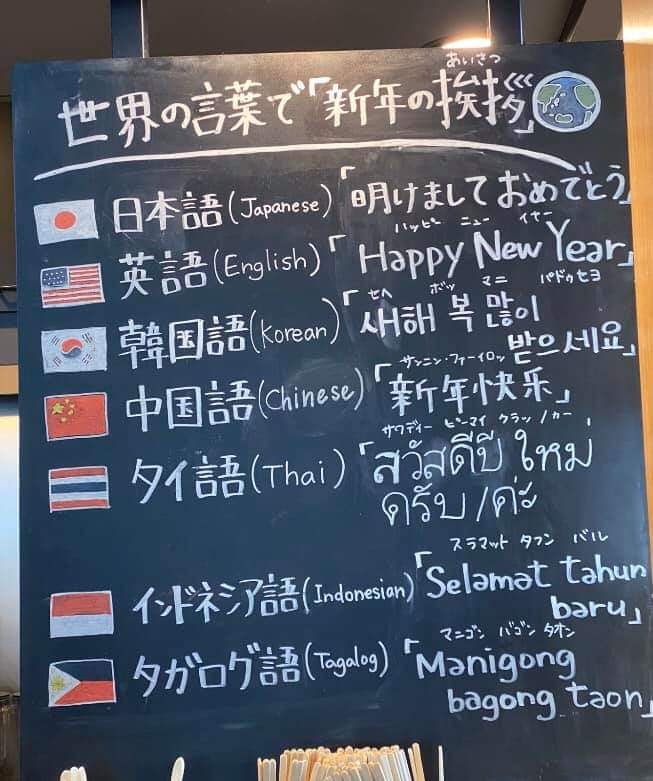 あいさつ
世界の言葉で「新年の挨拶」
日本語(Japanese)「明けましておめでとう」
ハッピー ニュー イヤー
英語(English)「Happy New Year」
セヘ ボッ マニ パドゥセヨ
韓国語(Korean)「새해 복 많이
받으세요」
サンニン・ファーイロッ
中国語(Chinese)「新年快乐」
サワディー ピーマイ クラッ/カー
タイ語(Thai)「สวัสดีปีใหม่
ครับ/ค่ะ
スラマット タフン バル
インドネシア語(Indonesian)「Selamat tahun
baru」
マニゴン バゴン タオン
タガログ語(Tagalog)「Manigong
bagong taon」